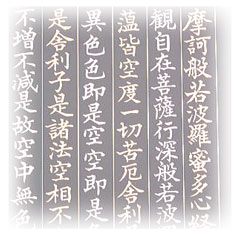 摩訶般若波羅蜜多心経
觀自在菩薩行深般若波
薀皆空度一切苦厄舍利
異色色即是空空即是
是舍利子是諸法空相不
不增不減是故空中無色